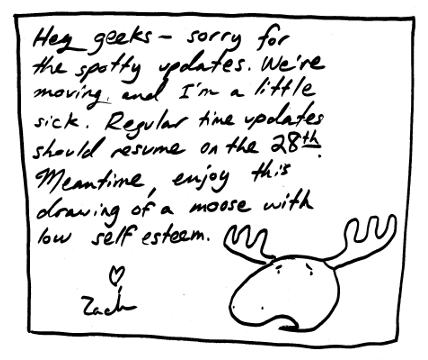 Hey geeks - sorry for
the spotty updates. We're
moving, and I'm a little
sick. Regular time updates
should resume on the 28th.
Meantime, enjoy this
drawing of a moose with
low self esteem.
Zach